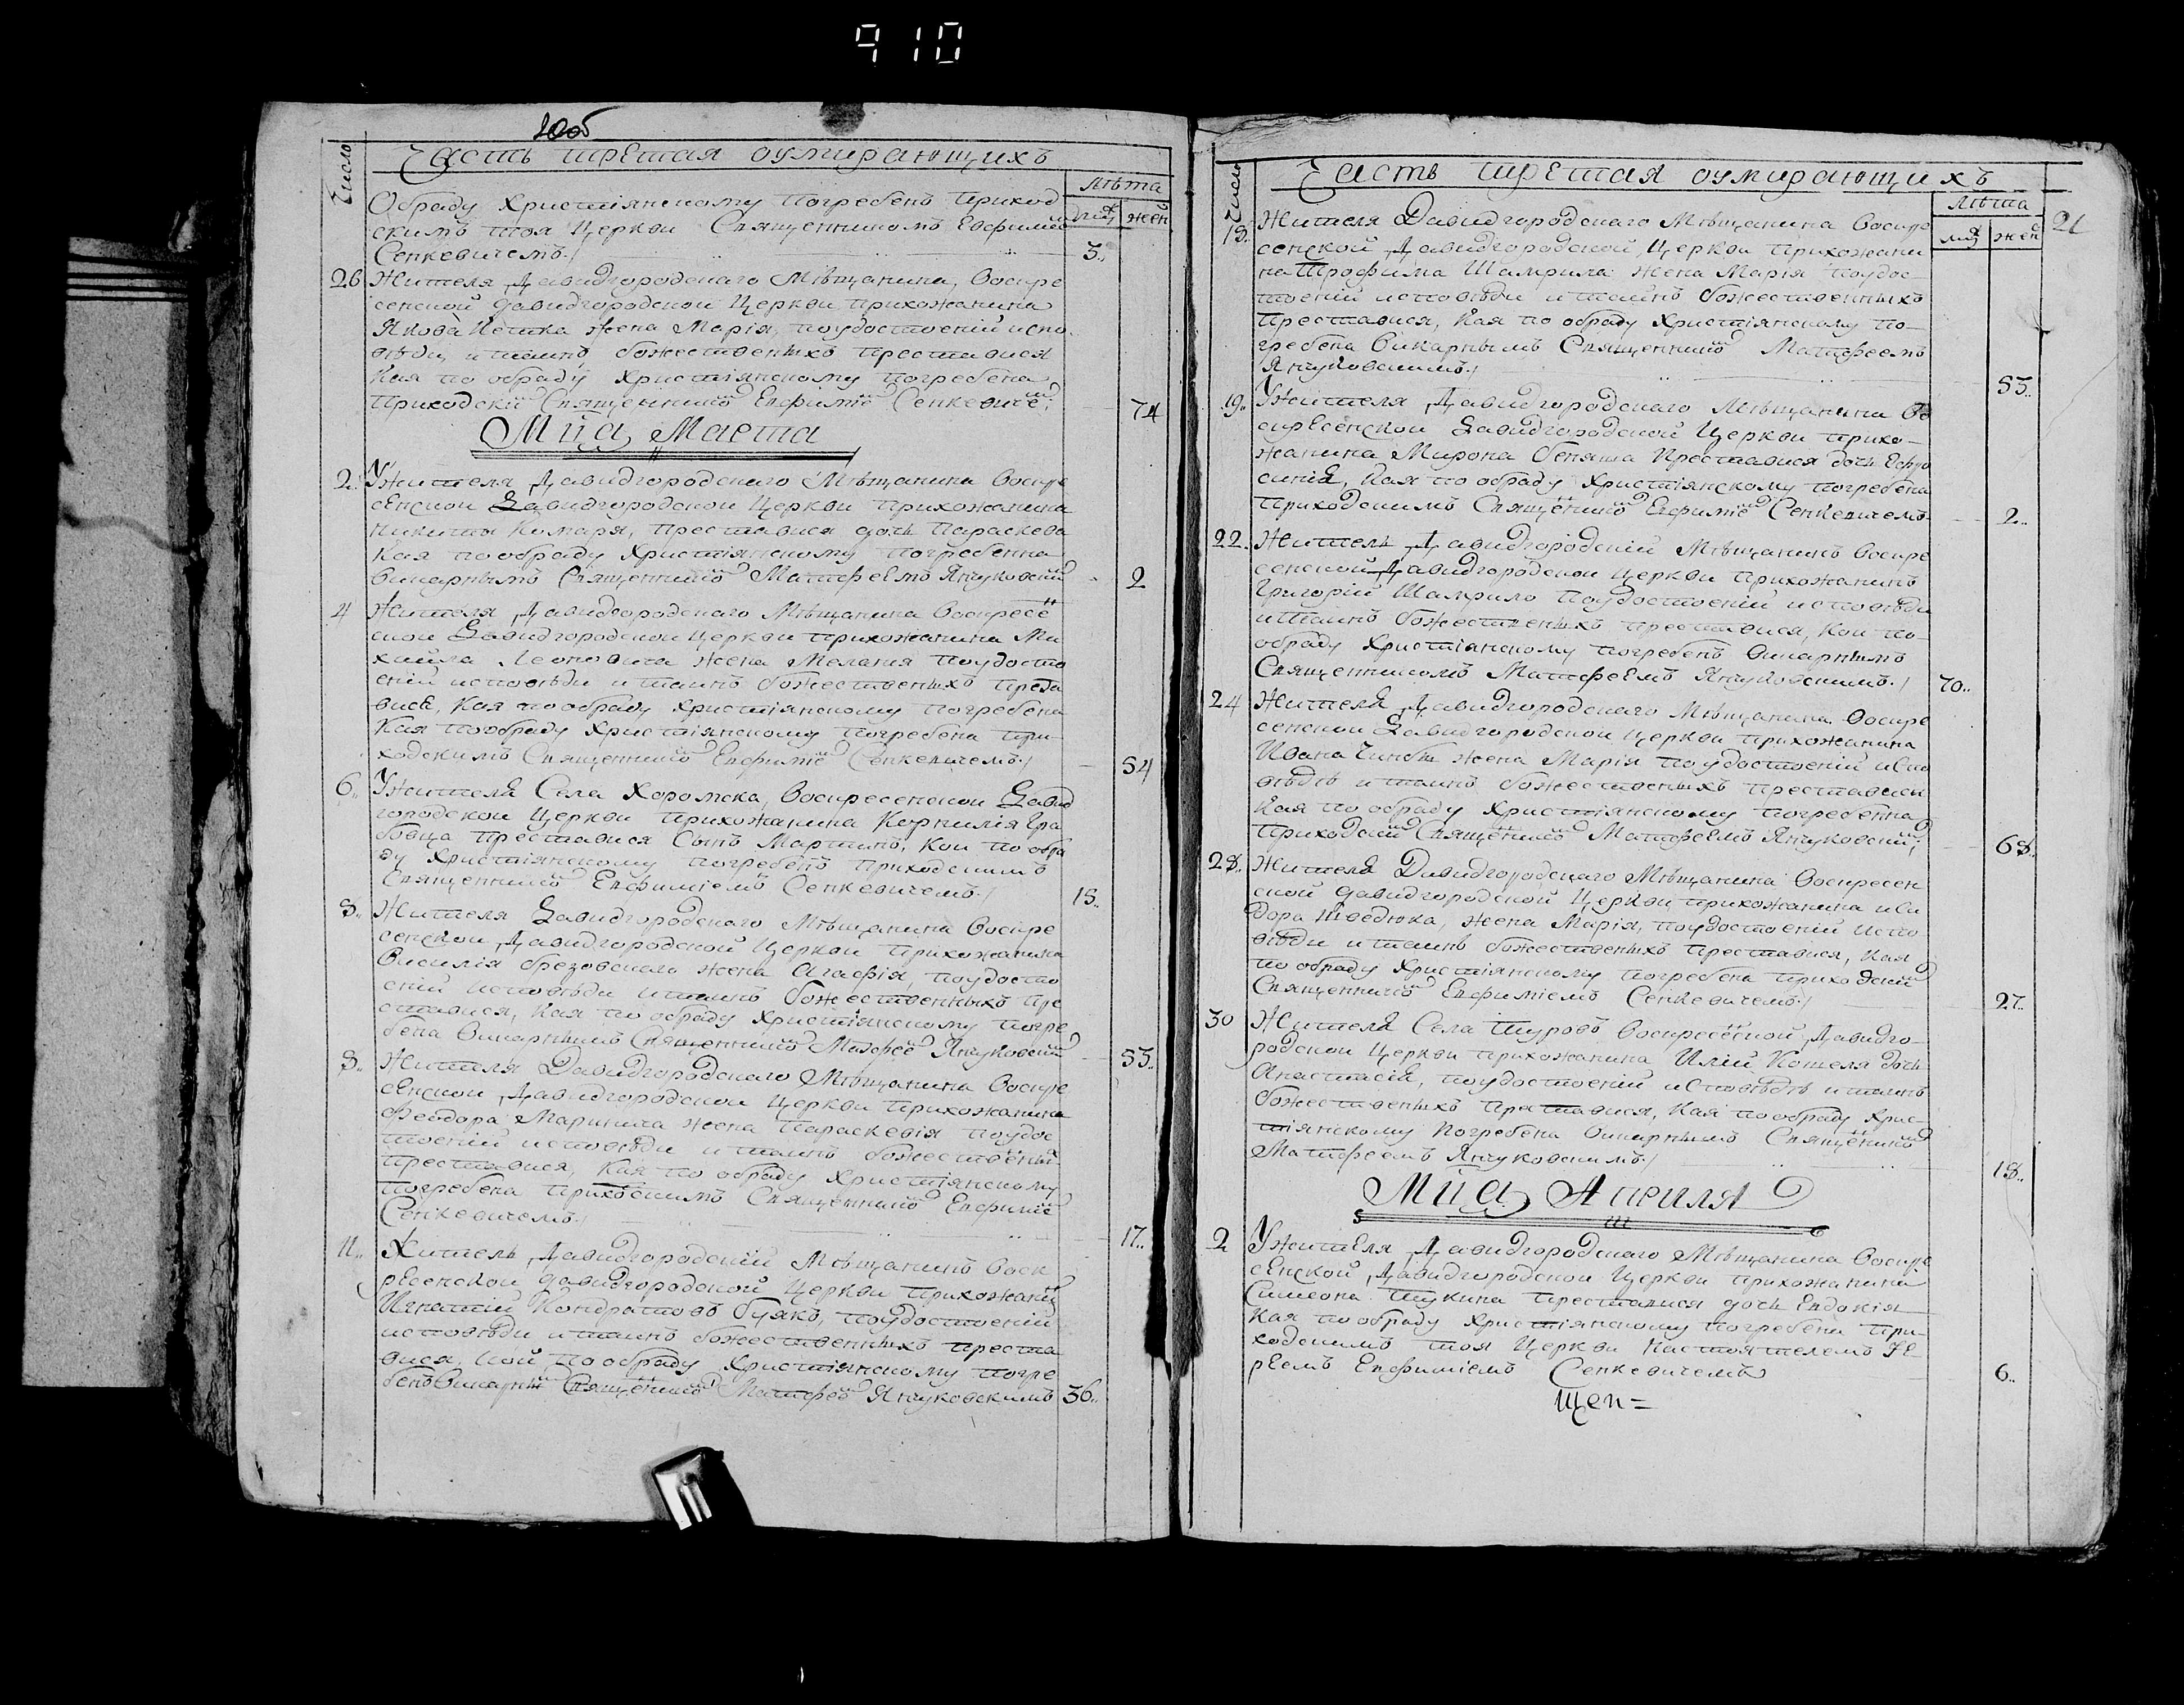 910
20об
Число
Часть третая оумирающихъ
Лѣта
муж жен
Обряду Християнскому погребенъ приход
скимъ тоя Церкви Священникомъ Евфиміем
Сенкевичемъ. 3..
26 Жителя Давидгородскаго Мѣщанина, Воскре
сенской Давидгородской Церкви прихожанина
Якова жена Марія, поудостоеній испо
вѣди, и таинъ божественныхъ преставися
Кая по обряду Християнскому погребена
Приходскій Священникō Евфиміē Сенкевичē. 74
Мца Маета
2. Ужителя Давидгородскаго Мѣщанина Воскре
сенской Давидгородской Церкви Прихожанина
Никиты Комаря, преставися дочь Параскева
Кая по обряду Християнскому погребенна
Викарнымъ Священникō Матфеемъ Янчуковскій 2
4 Жителя Давидгородскаго Мѣщанина Воскресе
ской Давидгородской Церкви прихожанина Ми
хайла Леоновича жена Мелания поудосто
еній исповѣди и таинъ божественныхъ преста
вися, Кая пообряду Християнскому погребена
Кая пообряду Християнскому погребена при-
ходскимъ Священникō Евфиміē Сенкевичемъ. 54
6.. Ужителя Села Хоромска, Воскресенской Давид
городской Церкви прихожанина Корнилія Гра
бовца преставися Сынъ Мартинъ, Кои пообря
ду Християнскому погребенъ приходскимъ
Священникō Евфиміемъ Сенкевичемъ. 18..
8.. Жителя Давидгородскаго Мѣщанина Воскре
сенской Давидгородской Церкви Прихожанина
Василія Брезовскаго жена Агафія, поудосто
еній исповѣди и таинъ божественныхъ пре
ставися, Кая по обряду Християнскому погре
бена Викарнымъ Священникō Матфеē Янчуковскій 53..
8.. Жителя Давидгородскаго Мѣщанина Воскре
сенской Давидгородской Церкви прихожанина
Феодора Маринича жена Параскевія поудос
тоеній исповѣди и таинъ божественых
преставися, Кая по обряду Християнскому
погребена приходскимъ Священникō Евфиміē
Сенкевичемъ. 17..
11.. Житель Давидгородскій Мѣщанинъ Воск
ресенской Давидгородской Церкви прихожани
Игнатій Кондратовъ Буякъ, поудостоеній
исповѣди и таинъ божественныхъ преста
вися, кой по обряду Християнскому погре
бенъ Викарны Священникō Матфеō Янчуковскимъ 36..
Число
Часть третая оумирающихъ
Лѣта 21
муж жен
18.. Жителя Давидгородскаго Мѣщанина Воскре
сенской Давидгородской Церкви Прихожани
на Трофима Шамрила жена Марія поудос-
тоеній исповѣди и таинъ божественныхъ
преставися, Кая по обряду Християнскому по-
гребена Викарнымъ Священникō Матфеемъ
Янчуковскимъ. 53..
19.. Ужителя Давидгородскаго Мѣщанина Во
скресенской Давидгородской Церкви прихо-
жанина Мирона Беняша Преставися дочь Евфро
синія, Кая по обряду Християнскому погребена
приходскимъ Священникō Евфиміē Сенкевичемъ. 2..
22. Житель Давидгородскій Мѣщанинъ Воскре
сенской Давидгородской Церкви прихожанинъ
Григорій Шамрило поудостоеній исповѣди
и Таинъ божественыхъ преставися, Кои по-
обряду Християнскому погребенъ викарнымъ
Священникомъ Матфеемъ Янчуковскимъ. 70..
24 Жителя Давидгородскаго Мѣщанина Воскре
сенской Давидгородской Церкви прихожанина
Ивана жена Марія поудостоеній испо
вѣдѣ и таинъ божественыхъ преставися
Кая по обряду Християнскому погребенна
Приходскій Священникō Матфеемъ Янчуковскій 68.
28.. Жителя Давидгородскаго Мѣщанина Воскресен
ской Давидгородской Церкви прихожанина Иси
дора Шведюка, жена Марія, поудостоеній испо
вѣди и таинъ божественыхъ преставися, Кая
по обряду Християнскому погребена приходскій
Священникō Евфиміемъ Сенкевичемъ. 27..
30 Жителя Села Туровъ Воскресēной Давидго-
родской Церкви прихожанина Иліи Котеля дочь
Анастасія, поудостоеній исповѣдѣ и таинъ
божественыхъ преставися, Кая пообряду Хрис-
тіянскому Погребена викарнымъ Священникō
Матфеемъ Янчуковскимъ. 18..
Мца Априля
2 Ужителя Давидгородскаго Мѣщанина Воскре
сенской Давидгородской Церкви прихожанина
Симеона Щукина преставися дочь Евдокія
Кая пообряду Християнскому погребена при-
ходскимъ тоя Церкви Настоятелемъ Іе-
реемъ Евфиміемъ Сенкевичемъ 6..
Щеп=